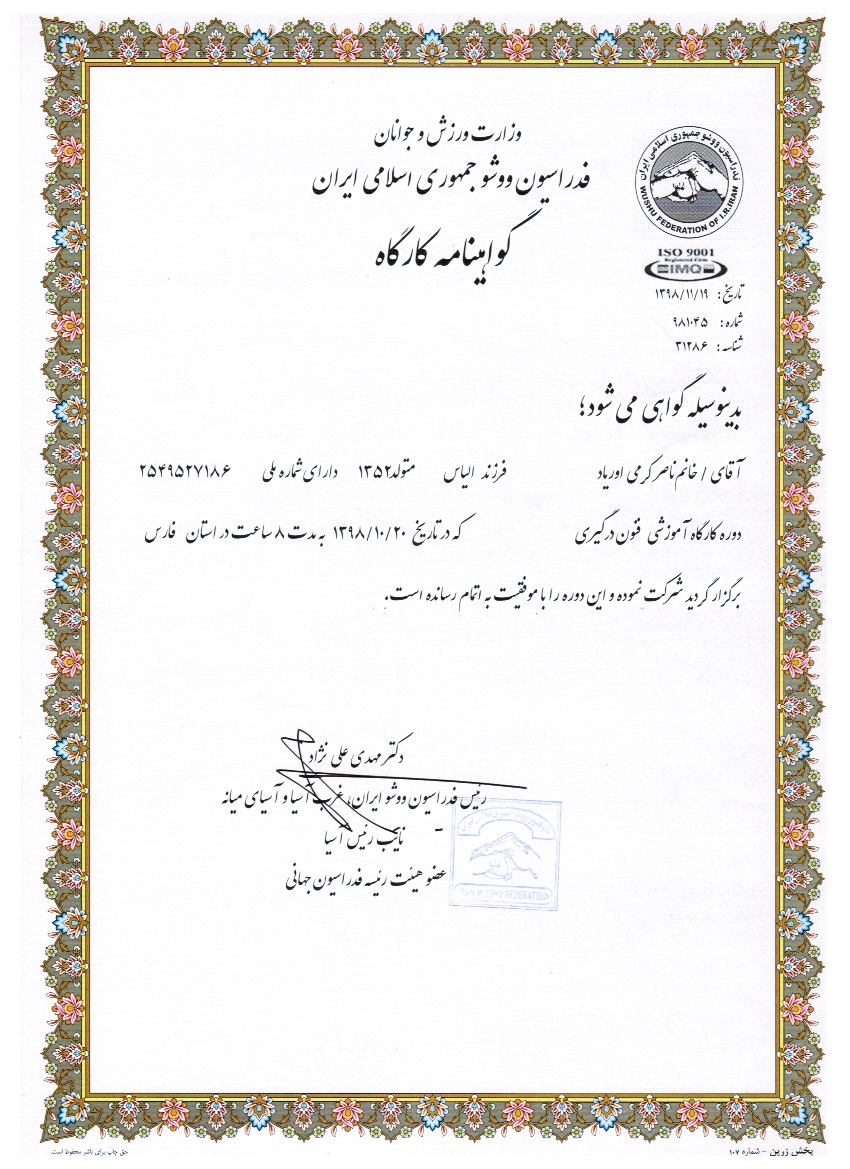 وزارت ورزش و جوانان
فدراسیون ووشو جمهوری اسلامی ایران
گواهینامه کارگاه
فدراسیون ووشو جمهوری اسلامی ایران
WUSHU FEDERATION OF I.R.IRAN
ISO 9001
Registered Firm
IMQ
تاریخ: ۱۳۹۸/۱۱/۱۹
شماره: ۹۸۱۰۴۵
شناسه: ۳۱۲۸۶
بدینوسیله گواهی می شود؛
آقای / خانم ناصر کرمی اوریاد فرزند الیاس متولد ۱۳۵۲ دارای شماره ملی ۲۵۴۹۵۲۷۱۸۶
دوره کارگاه آموزشی فنون درگیری که در تاریخ ۱۳۹۸/۱۰/۲۰ به مدت ۸ ساعت در استان فارس
برگزار گردید شرکت نموده و این دوره را با موفقیت به اتمام رسانده است.
دکتر مهدی علی نژاد
رئیس فدراسیون ووشو ایران، غرب آسیا و آسیای میانه
نایب رئیس آسیا
عضو هیئت رئیسه فدراسیون جهانی
WUSHU FEDERATION
پخش زرین - شماره ۱۰۷
حق چاپ برای ناشر محفوظ است.